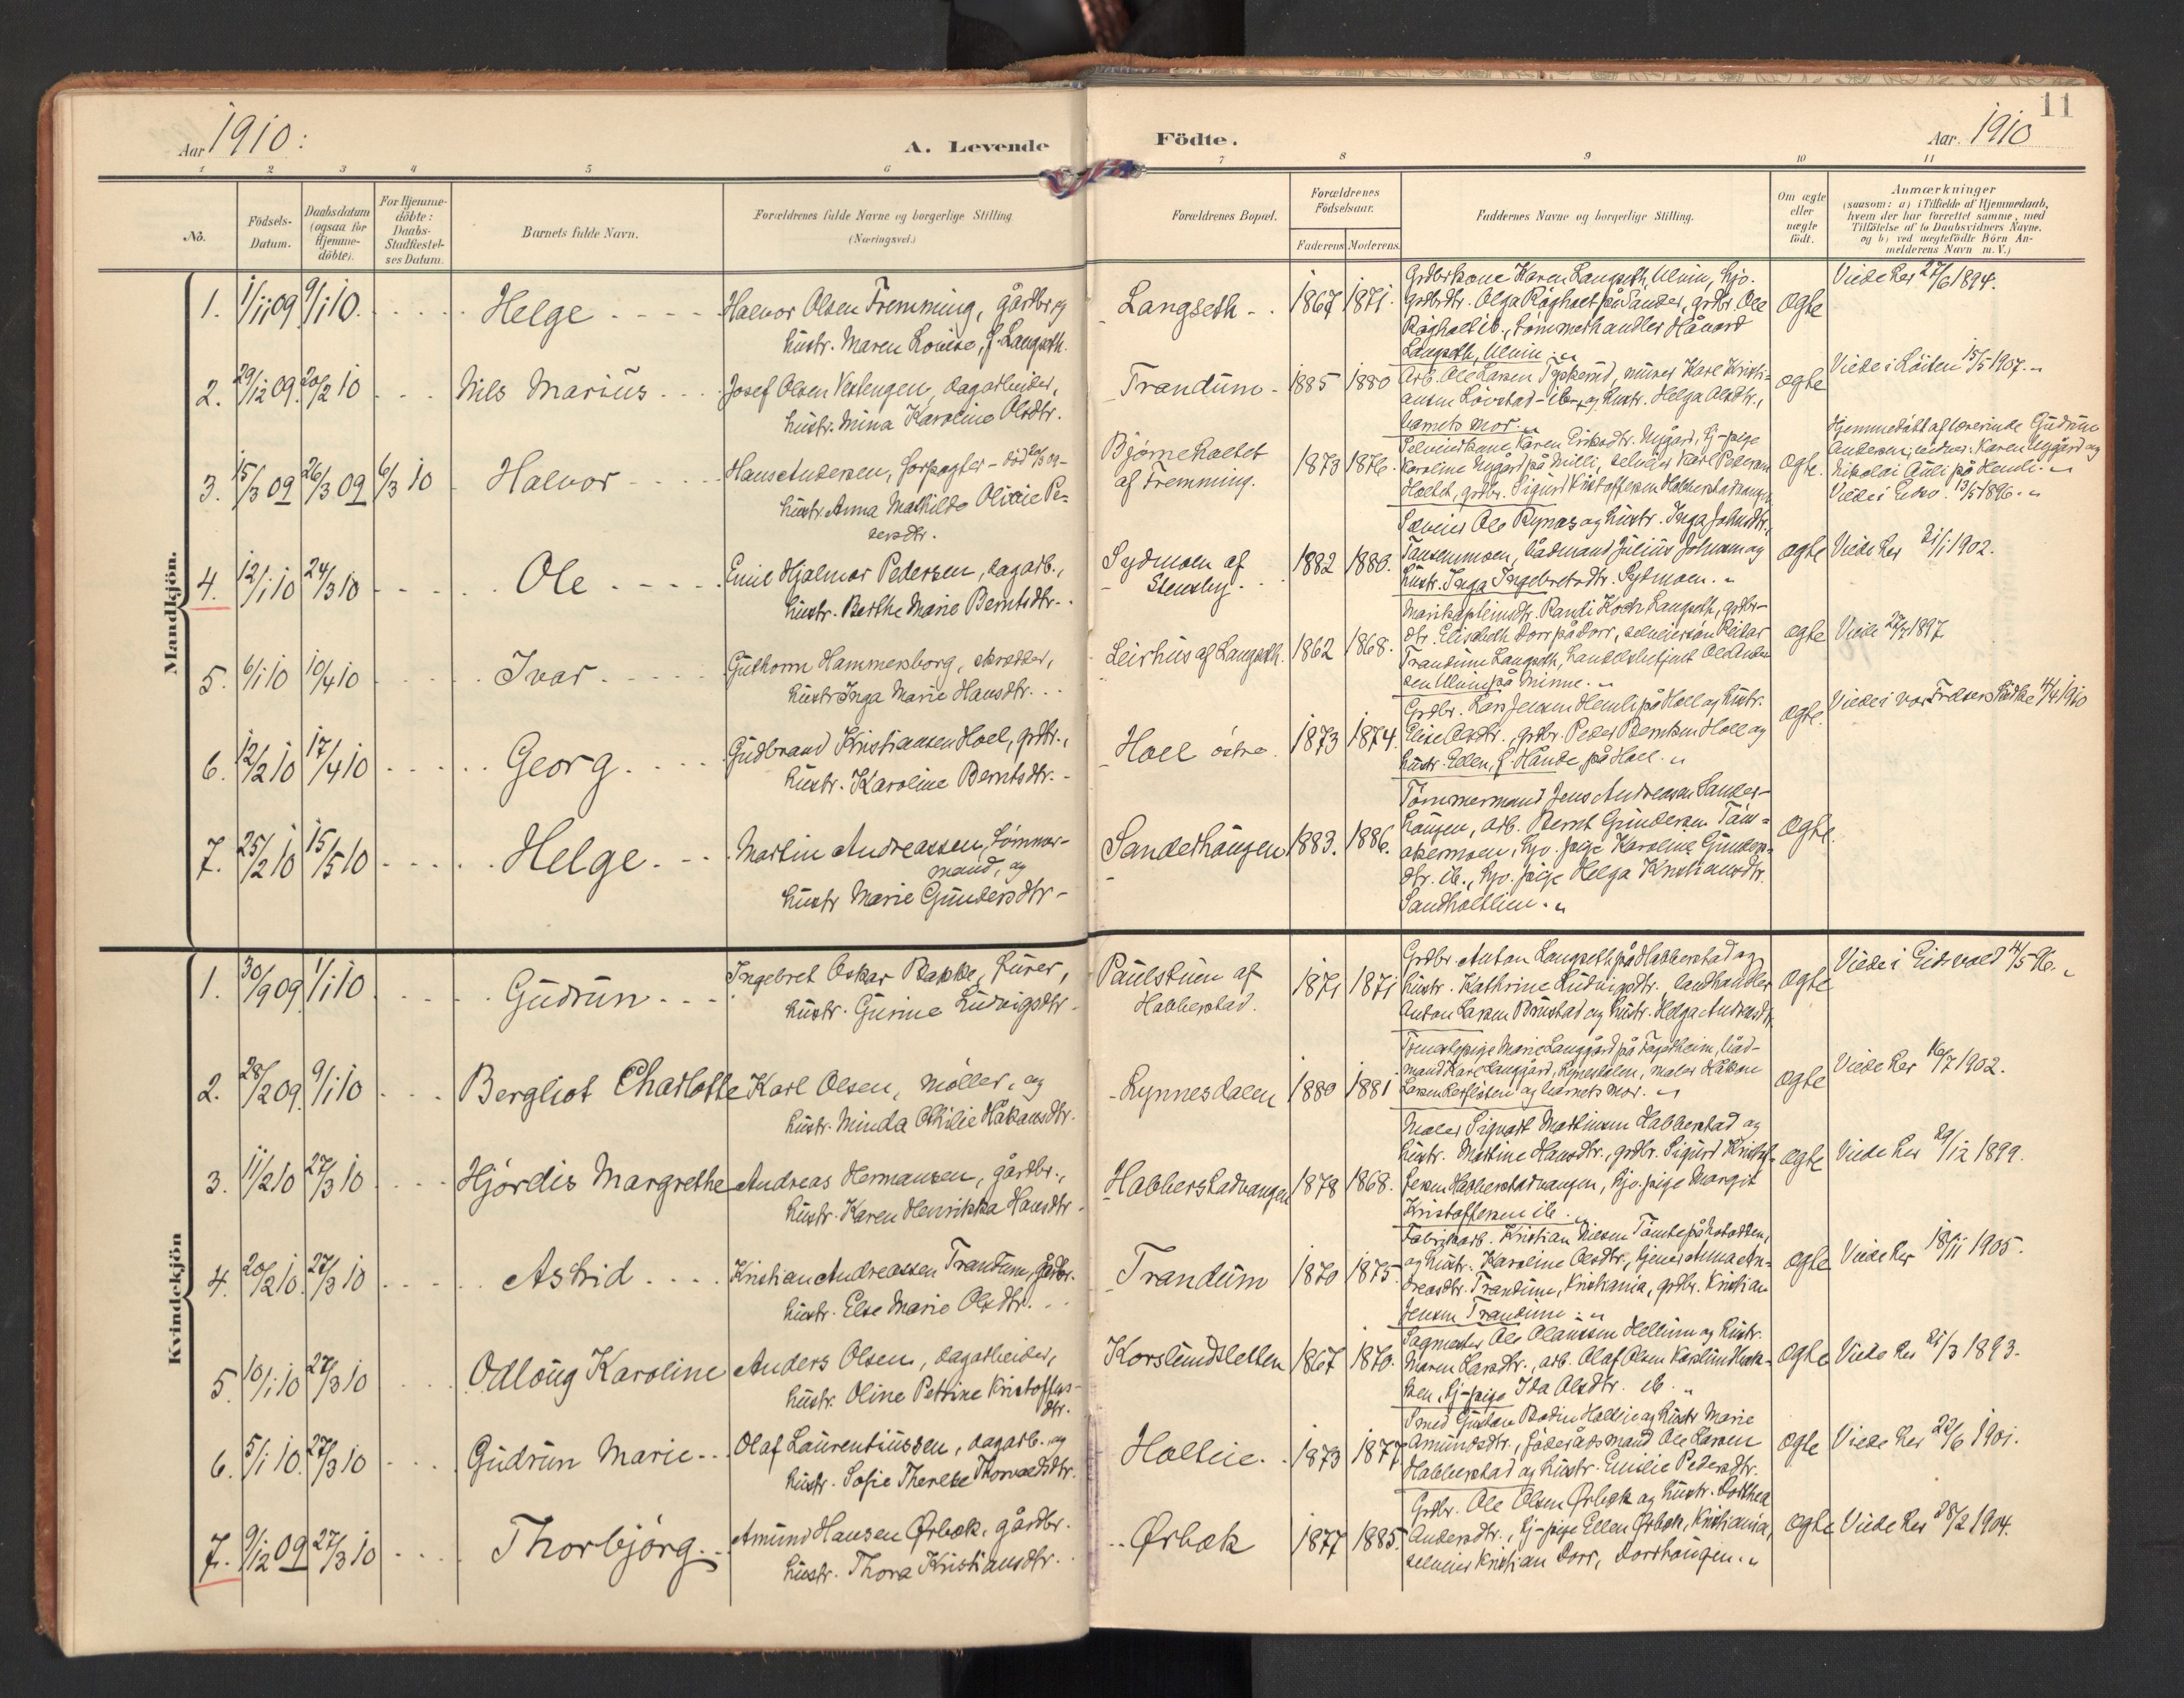 Aar 1910:
A. Levende
Födte.
Aar 1910
11
1 2 3 4 5 6 7 8 9 10 11
No.
Födsels-
Datum.
Daabsdatum
(ogsaa for
Hjemme-
döbte).
For Hjemme-
döbte:
Daabs-
Stadfæstel-
ses Datum.
Barnets fulde Navn.
Forældrenes fulde Navne og borgerlige Stilling
(Næringsvei.)
Forældrenes Bopæl.
Forældrenes
Födselsaar.
Faderens Moderens
Faddernes Navne og borgerlige Stilling.
Om ægte
eller
uægte
födt.
Anmærkninger
(saasom: a) i Tilfælde af Hjemmedaab,
hvem der har forrettet samme, med
Tilföielse af to Daabsvidners Navne.
og b) ved uægtefödte Börn An-
melderens Navn m. V.)
Mandkjön.
1. 1/11 09 9/1 10 Helge
Halvor Olsen Fremming, gårdbr. og
hustr. Maren Lovise, f. Langseth.
Langseth 1867 1871.
Grdbrkone Karen Langseth, Ulvin, hjv.
grdbrdtr. Olga Råholt på Sander, grdbr. Ole
Råholt ib., tömmerhandler Håvard
Langseth, Ulvin
ægte
Viede her 27/6 1894.
2. 29/12 09. 20/2 10 Nils Marius
Josef Olsen Vestengen, dagarbeider,
hustr. Mina Karoline Olsdtr.
Trandum 1885 1880
Arb. Ole Larsen, murer Karl Kristi-
ansen Lövstad og hustr. Helga Olsdtr.,
barnets mor.
ægte
Viede i Löiten 15/5 1907.
3. 15/3 09 26/3 09 6/3 10 Halvor
Hans Andersen, forpagter - död 20/3 09 -
hustr. Anna Mathilde Olivie Pe-
dersdtr.
Björneholtet
af Fremming.
1873 1876.
Selveierkone Karen Eriksdtr. Nygård, tj-pige
Karoline Nygård på Milli, selveier Karl Pedersen
Holtet, grdbr. Sigurd Kristoffersen Habberstadvangen
ægte.
Hjemmedöbt af lærerinde Gudrun
Andersen; vidner: Karen Nygård og
Nikolai Auli på Hemli.
Viede i Eidsv. 13/5 1896.
4. 12/1 10 24/3 10 Ole
Emil Hjalmar Pedersen, dagarb.,
hustr. Berthe Marie Berntsdtr.
Sydmoen af
Stensby.
1882 1880.
Selveier Ole Rynæs og hustr. Inga Johnsdtr.,
bådmand Julius Johnsen og
hustr. Inga Ingebretsdtr. Sydmoen.
ægte
Viede her 21/1 1902.
5. 6/1 10 10/4 10 Ivar
Guthorm Hammersborg, skrædder,
hustr. Inga Marie Hansdtr.
Leirhus af Langseth. 1862 1868.
Randi Koch Langseth, grdbr-
dtr. Elisabeth Dorr på Dorr, selveiersön Reidar
Trandum Langseth, handelsbetjent Ole Ander-
sen Ulvin på Minne.
ægte
Viede 27/7 1897
6. 12/2 10 17/4 10 Georg
Gudbrand Kristiansen Hoel, grdbr.,
hustr. Karoline Berntsdtr.
Hoel östre. 1873 1874.
Grdbr. Lars Jensen Hemli på Hoel og hustr.
Elise Olsdtr., grdbr. Peder Berntsen Hoel og
hustr. Ellen, f. Hånde på Hoel.
ægte.
Viede i Vor Frelsers Kirke 4/4 1910
7. 25/2 10 15/5 10 Helge
Martin Andreassen, tömmer-
mand, og
hustr. Marie Gundersdtr.
Sanderhaugen 1883. 1886.
Tömmermand Jens Andreasen Sander-
haugen, arb. Bernt Gundersen Tæm-
akermoen, hjv. pige Karoline Gunders-
dtr. ib., hjv. pige Helga Kristiansdtr.
Sandholtlien.
ægte.
Kvindekjön
1. 30/9 09 1/1 10 Gudrun
Ingebret Oskar Bakke, furer,
hustr. Gurine Ludvigsdtr.
Paulstuen af
Habberstad.
1871 1871
Grdbr. Anton Langseth på Habberstad og
hustr. Kathrine Ludvigsdtr. landhandler
Anton Larsen Brustad og hustr. Helga Andersdtr.
ægte
Viede i Eidsvold 4/5 96.
2. 28/12 09. 9/1 10 Bergliot Charlotte
Karl Olsen, möller, og
hustr. Minda Othilie Håkansdtr.
Rynnesdalen 1880 1881
pige Marie Langgård på Fagerheim, båd-
mand Karl Langgård, Rynesdalen, maler Håkon
Larsen og barnets mor.
ægte
Viede her 16/7 1902.
3. 11/2 10 27/3 10 Hjördis Margrethe
Andreas Hermansen, gårdbr.,
hustr. Karen Henrikka Hansdtr.
Habberstadvangen 1878 1868.
Maler Sigvart Martinsen Habberstad og
hustr. Martine Hansdtr., grdbr. Sigurd Kristof-
fersen Habberstadvangen, hjv. pige Margit
Kristoffersen ib.
ægte
Viede her 29/12 1899.
4. 20/2 10. 27/3 10 Astrid
Kristian Andreassen Trandum, gårdbr.
hustr. Else Marie Olsdtr.
Trandum 1870 1875.
Fabrikarb. Kristian Nilsen Tömte på Notodden,
og hustr. Karoline Olsdtr., tjener Anna An-
dreasdtr. Trandum, Kristiania, grdbr. Kristian
Jensen Trandum.
ægte
Viede her 18/11 1905.
5. 10/1 10 27/3 10 Odlöug Karoline
Anders Olsen, dagarbeider,
hustr. Oline Petrine Kristoffers-
dtr.
Korslundsletten 1867 1870.
Sagmester Ole Olaussen Hellum og hustr.
Maren Larsdtr., arb. Olaf Olsen Korslundslet-
ten, tj-pige Ida Olsdtr. ib.
ægte
Viede her 21/3 1893.
6. 5/1 10. 27/3 10 Gudrun Marie
Olaf Laurentiussen, dagarb. og
hustr. Sofie Therese Thorvaldsdtr.
Holtlie. 1873 1877
Smed Gustav Bodin Holtlie og hustr. Marie
Amundsdtr., föderådsmand Ole Larsen
Habberstad og hustr. Emilie Pedersdtr.
ægte
Viede her 22/6 1901.
7. 9/12 09 27/3 10 Thorbjörg
Amund Hansen Ørbæk, gårdbr.
hustr. Thora Kristiansdtr.
Ørbæk 1877 1885.
Grdbr. Ole Olsen Ørbæk og hustr. Dorthea
Andersdtr., tj-pige Ellen Ørbæk, Kristiania,
selveier Kristian Dorr, Dorrhaugen.
ægte
Viede her 28/2 1904.